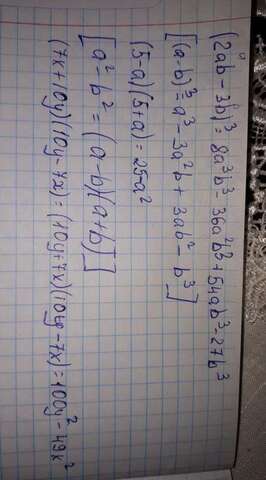 (2ab-3b)³=8a³b³-36a²b³+54ab³-27b³
[(a-b)³=a³-3a²b+3ab²-b³]
(5a)(5+a)=25a²
[a²-b²=(a-b)(a+b)]
(7x+10y)(10y-7x)=(10y+7x)(10y-7x)=100y²-49x²